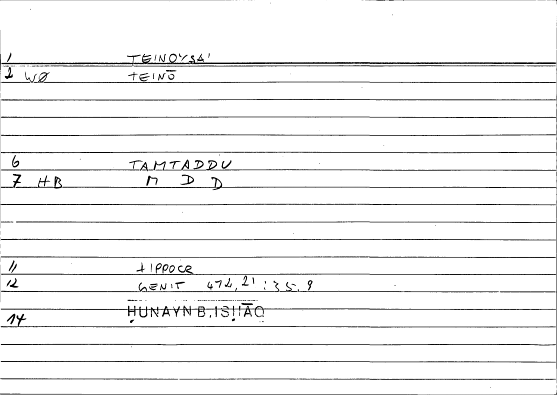 1 TEINOYSA'
2 WØ TEINŌ
6 TAMTADDU
7 HB M D D
11 HIPPOCR
12 GENIT 472,21:35.9
14 ḤUNAYN B.ISḤĀQ